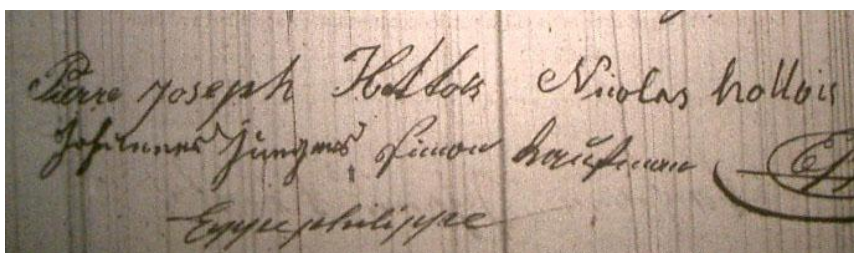 Pierre Joseph Hollois Nicolas hollois
Johannes Jungers Simon Kaufman
Eyppe philippe